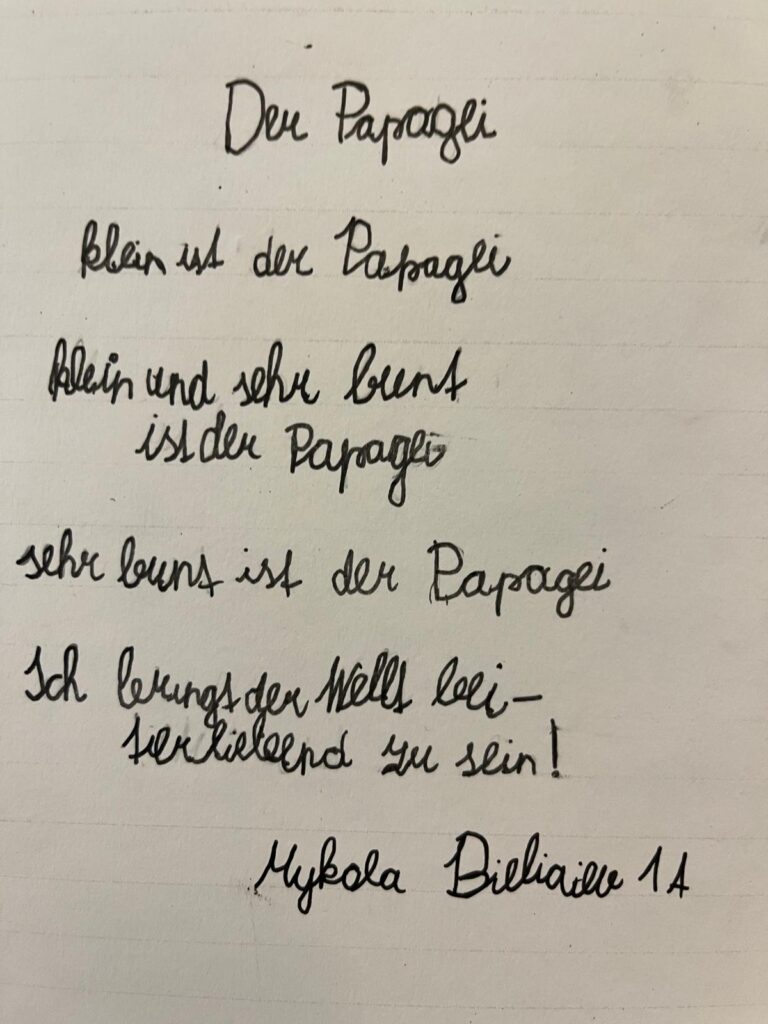 Der Papagei
klein ist der Papagei
klein und sehr bunt
ist der Papagei
sehr bunt ist der Papagei
Ich der Wellt bei-
tierliebend zu sein!
Mykola Bieliaiev 1A